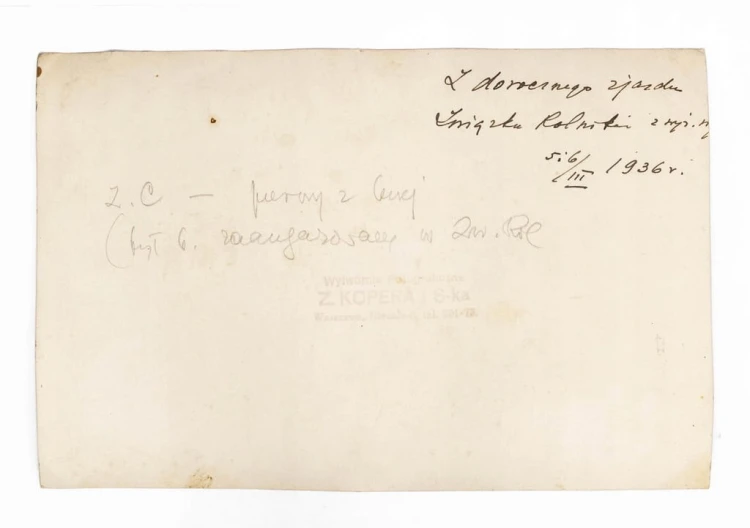 Z dorocznego zjazdu
Związku Rolników z
5 i 6/III 1936 r.
Z.C — pierwszy z lewej
(był b. zaangażowany w Zw. Rol
Z. KOPERA i S-ka